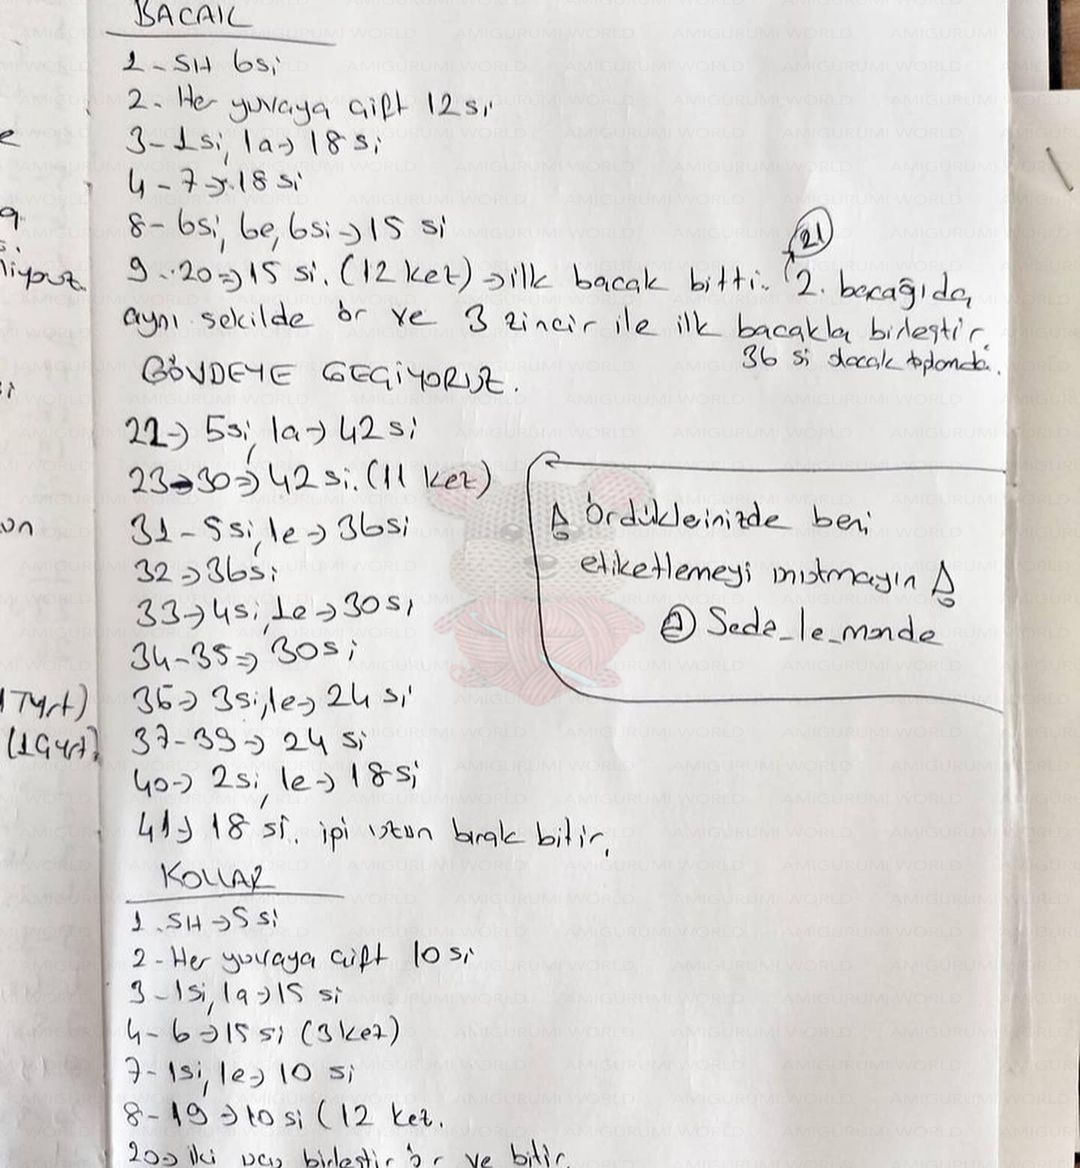 BACAK
1- SH 6si
2- Her yuvaya çift 12 si
3- 1si, 1a → 18 si
4 - 7 → 18 si
8- 6si, 6e, 6si → 15 si
21
9 - 20 ⇒ 15 si. (12 kez) → ilk bacak bitti. 2. bacağıda
aynı şekilde ör ve 3 zincir ile ilk bacakla birleştir.
36 si olacak toplamda.
GÖVDEYE GEÇİYORUZ.
22 → 5si, 1a → 42 si
23-30 ⇒ 42 si. (11 kez)
31 - 5si, 1e → 36si
32 → 36si
33 → 4si, 1e → 30si
34-35 ⇒ 30si
36 → 3si, 1e → 24 si
37-39 → 24 si
40 → 2si, 1e → 18si
41 → 18 si. ipi uzun bırak bitir.
Ördüklerinizde beni
etiketlemeyi unutmayın
@ Seda_le_monde
KOLLAR
1. SH → 5 si
2- Her yuvaya çift 10 si
3 - 1si, 1a → 15 si
4 - 6 → 15 si (3 kez)
7- 1si, 1e → 10 si
8 - 19 → 10 si (12 kez.
20 ⇒ iki ucu birleştir ör ve bitir.
AMIGURUMI WORLD